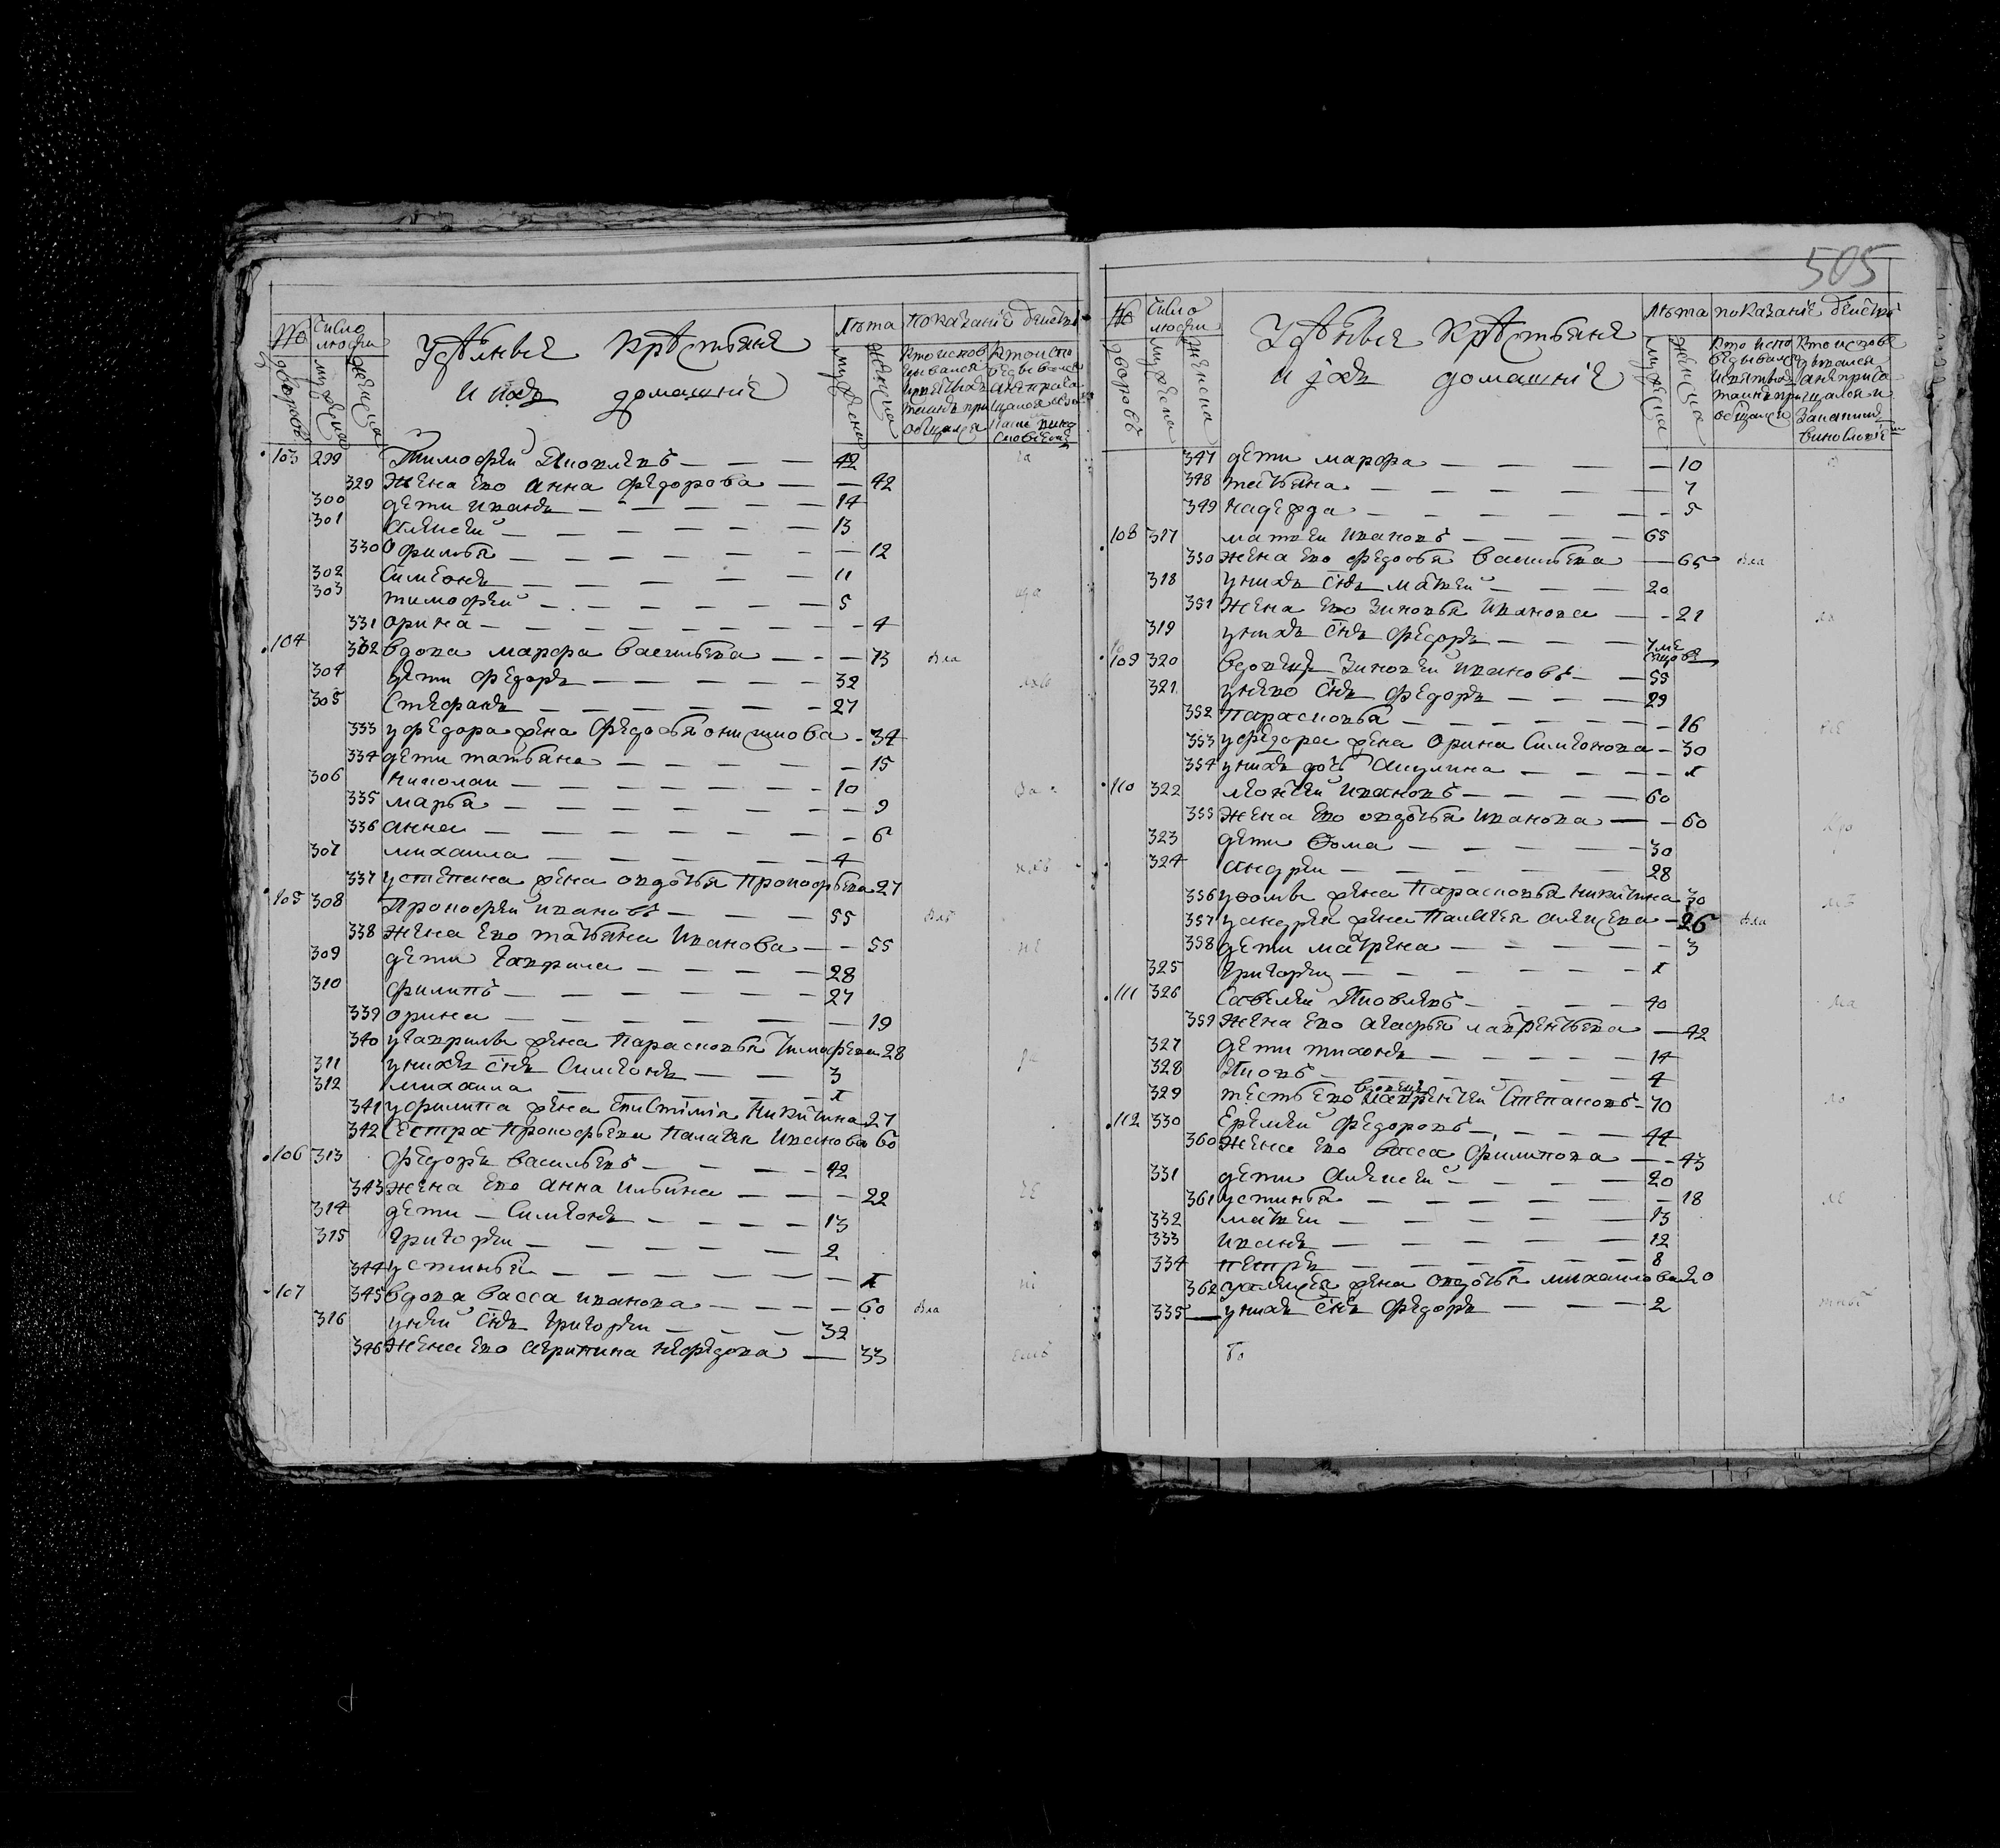 505
№ дворовъ
Число людей
мужеска
женска
Удѣлныя Крестьяня
и ихъ домашніе
Лѣта
мужеска
женска
показаніе действ
103 299 Тимофей Яковлевъ — — — 42
329 Жена ево Анна Федорова — — 42
300 дети Иванъ — — — — 14
301 Алексей — — — — — 13
330 Офимья — — — — — — 12
302 Симеонъ — — — — — 11
303 тимофей — — — — — 5
331 орина — — — — — — 4
104 332 вдова марфа васильева — — — 73 Вла
304 дети федоръ — — — — — 32
305 Стефанъ — — — — — — 27
333 у федора жена Федосья онисимова — 34
334 дети татьяна — — — — — 15
306 николаи — — — — — — 10
335 марья — — — — — — — 9
336 анна — — — — — — — 6
307 михаила — — — — — — 4
337 у степана жена овдотья Прокофьева 27
105 308 Прокофей ивановъ — — — 55
338 Жена ево татьяна Иванова — — 55
309 дети Гаврила — — — — 28
310 филипъ — — — — — — 27
339 орина — — — — — — — 19
340 у гаврилы жена Парасковья Тимофеева 28
311 у нихъ снъ Симеонъ — — — 3
312 михаила — — — — — 1
341 у филипа жена Епистимія Никитина 27
342 Сестра Прокофьева Палагея Иванова 60
106 313 Федоръ Васильевъ — — — — 42
343 Жена ево Анна Ильина — — — 22
314 дети — Симеонъ — — — — 13
315 Григорей — — — — — — 2
344 устинья — — — — — — — 1
107 345 вдова Васса иванова — — — — 60 Вла
316 у ней снъ Григорей — — — 32
346 Жена ево Агрипина Нефедова — 33
№ дворовъ
Число людей
мужеска
женска
Удѣлныя Крестьяня
и ихъ домашніе
Лѣта
мужеска
женска
показаніе действ
347 дети марфа — — — — — 10
348 татьяна — — — — — — 7
349 надежда — — — — — — 5
108 317 матвей ивановъ — — — — 65
350 Жена ево федосья Васильева — 65 Вла
318 у нихъ снъ матвей — — — 20
351 Жена ево Зиновья Иванова — — 21
319 у нихъ снъ федоръ — — —
109 320 вдовецъ Зиновей Ивановъ — — 55
321 у него снъ федоръ — — — 29
352 Парасковья — — — — — — 16
353 у федора жена Орина Симеонова — 30
354 у нихъ дочь Акулина — — — — 1
110 322 леонтей ивановъ — — — — 60
355 Жена ево овдотья Иванова — — 60
323 дети Фома — — — — — 30
324 андрей — — — — — — 28
356 у фомы жена Парасковья Никитина 30
357 у андрея жена Палагея алексеева — 26 Вла
358 дети матрена — — — — — 3
325 Григорей — — — — — — 1
111 326 Савелей Яковлевъ — — — — 40
359 Жена ево агафья лаврентьева — 42
327 дети тихонъ — — — — — 14
328 Яковъ — — — — — — 4
вдовецъ
329 тесть ево лаврентей Степановъ — 70
112 330 Еремей Федоровъ — — — — 44
360 Жена ево васса Филипова — — 43
331 дети Алексей — — — — 20
361 устинья — — — — — — 18
332 матвей — — — — — — 13
333 иванъ — — — — — — 12
334 петръ — — — — — — 8
362 у алексея жена овдотья михаилова 20
335 у нихъ снъ федоръ — — — 2